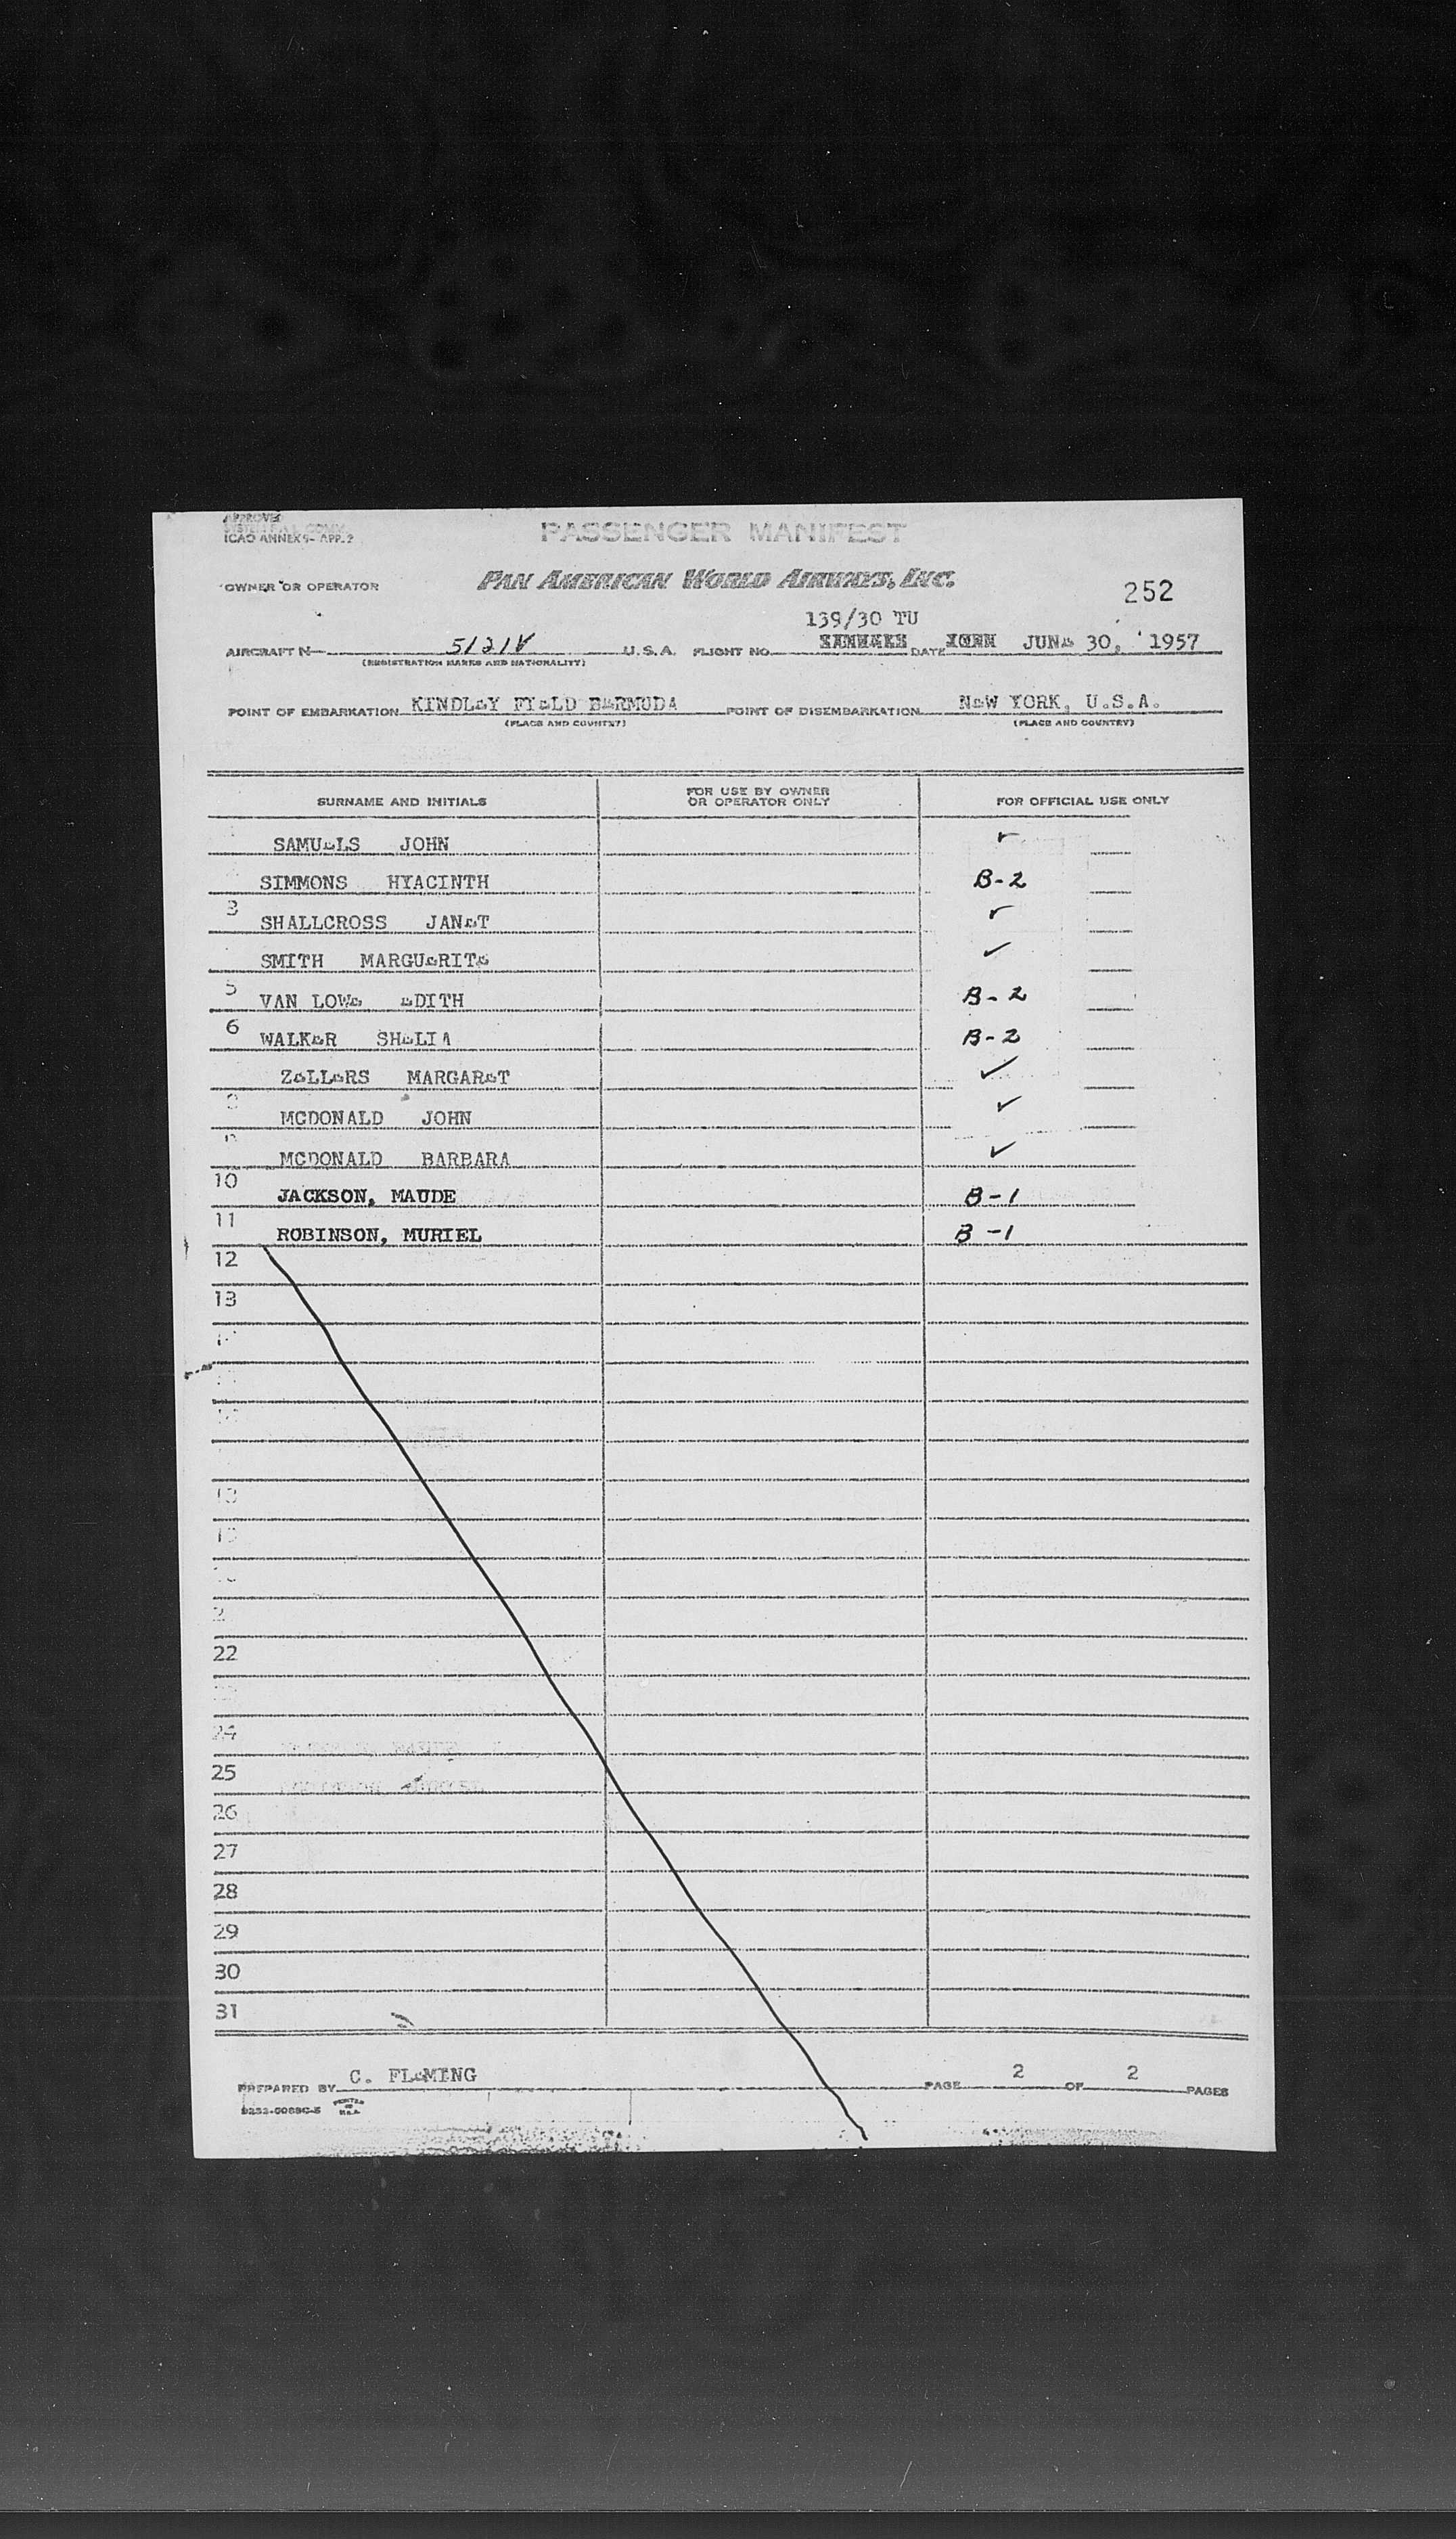 APPROVED
ICAO ANNEX 9- APP. 2
PASSENGER MANIFEST
OWNER OR OPERATOR
PAN AMERICAN WORLD AIRWAYS, INC.
252
139/30 TU
AIRCRAFT N- 5121V U.S.A. FLIGHT NO. DATE JUNE 30, 1957
(REGISTRATION MARKS AND NATIONALITY)
POINT OF EMBARKATION KINDLEY FIELD BERMUDA POINT OF DISEMBARKATION NEW YORK, U.S.A.
(PLACE AND COUNTRY) (PLACE AND COUNTRY)
SURNAME AND INITIALS FOR USE BY OWNER OR OPERATOR ONLY FOR OFFICIAL USE ONLY
SAMUELS JOHN ✓
SIMMONS HYACINTH B-2
3 SHALLCROSS JANET ✓
SMITH MARGUERITE ✓
5 VAN LOWE EDITH B-2
6 WALKER SHELIA B-2
ZELLERS MARGARET ✓
MCDONALD JOHN ✓
MCDONALD BARBARA ✓
10 JACKSON, MAUDE B-1
11 ROBINSON, MURIEL B-1
12
13
22
24
25
26
27
28
29
30
31
PREPARED BY C. FLEMING PAGE 2 OF 2 PAGES
PRINTED IN U.S.A.